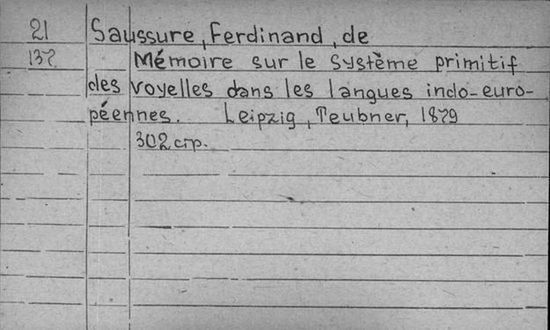 21 Saussure, Ferdinand, de
137 Mémoire sur le système primitif
des voyelles dans les langues indo-euro-
péennes. Leipzig, Teubner, 1879
302 стр.